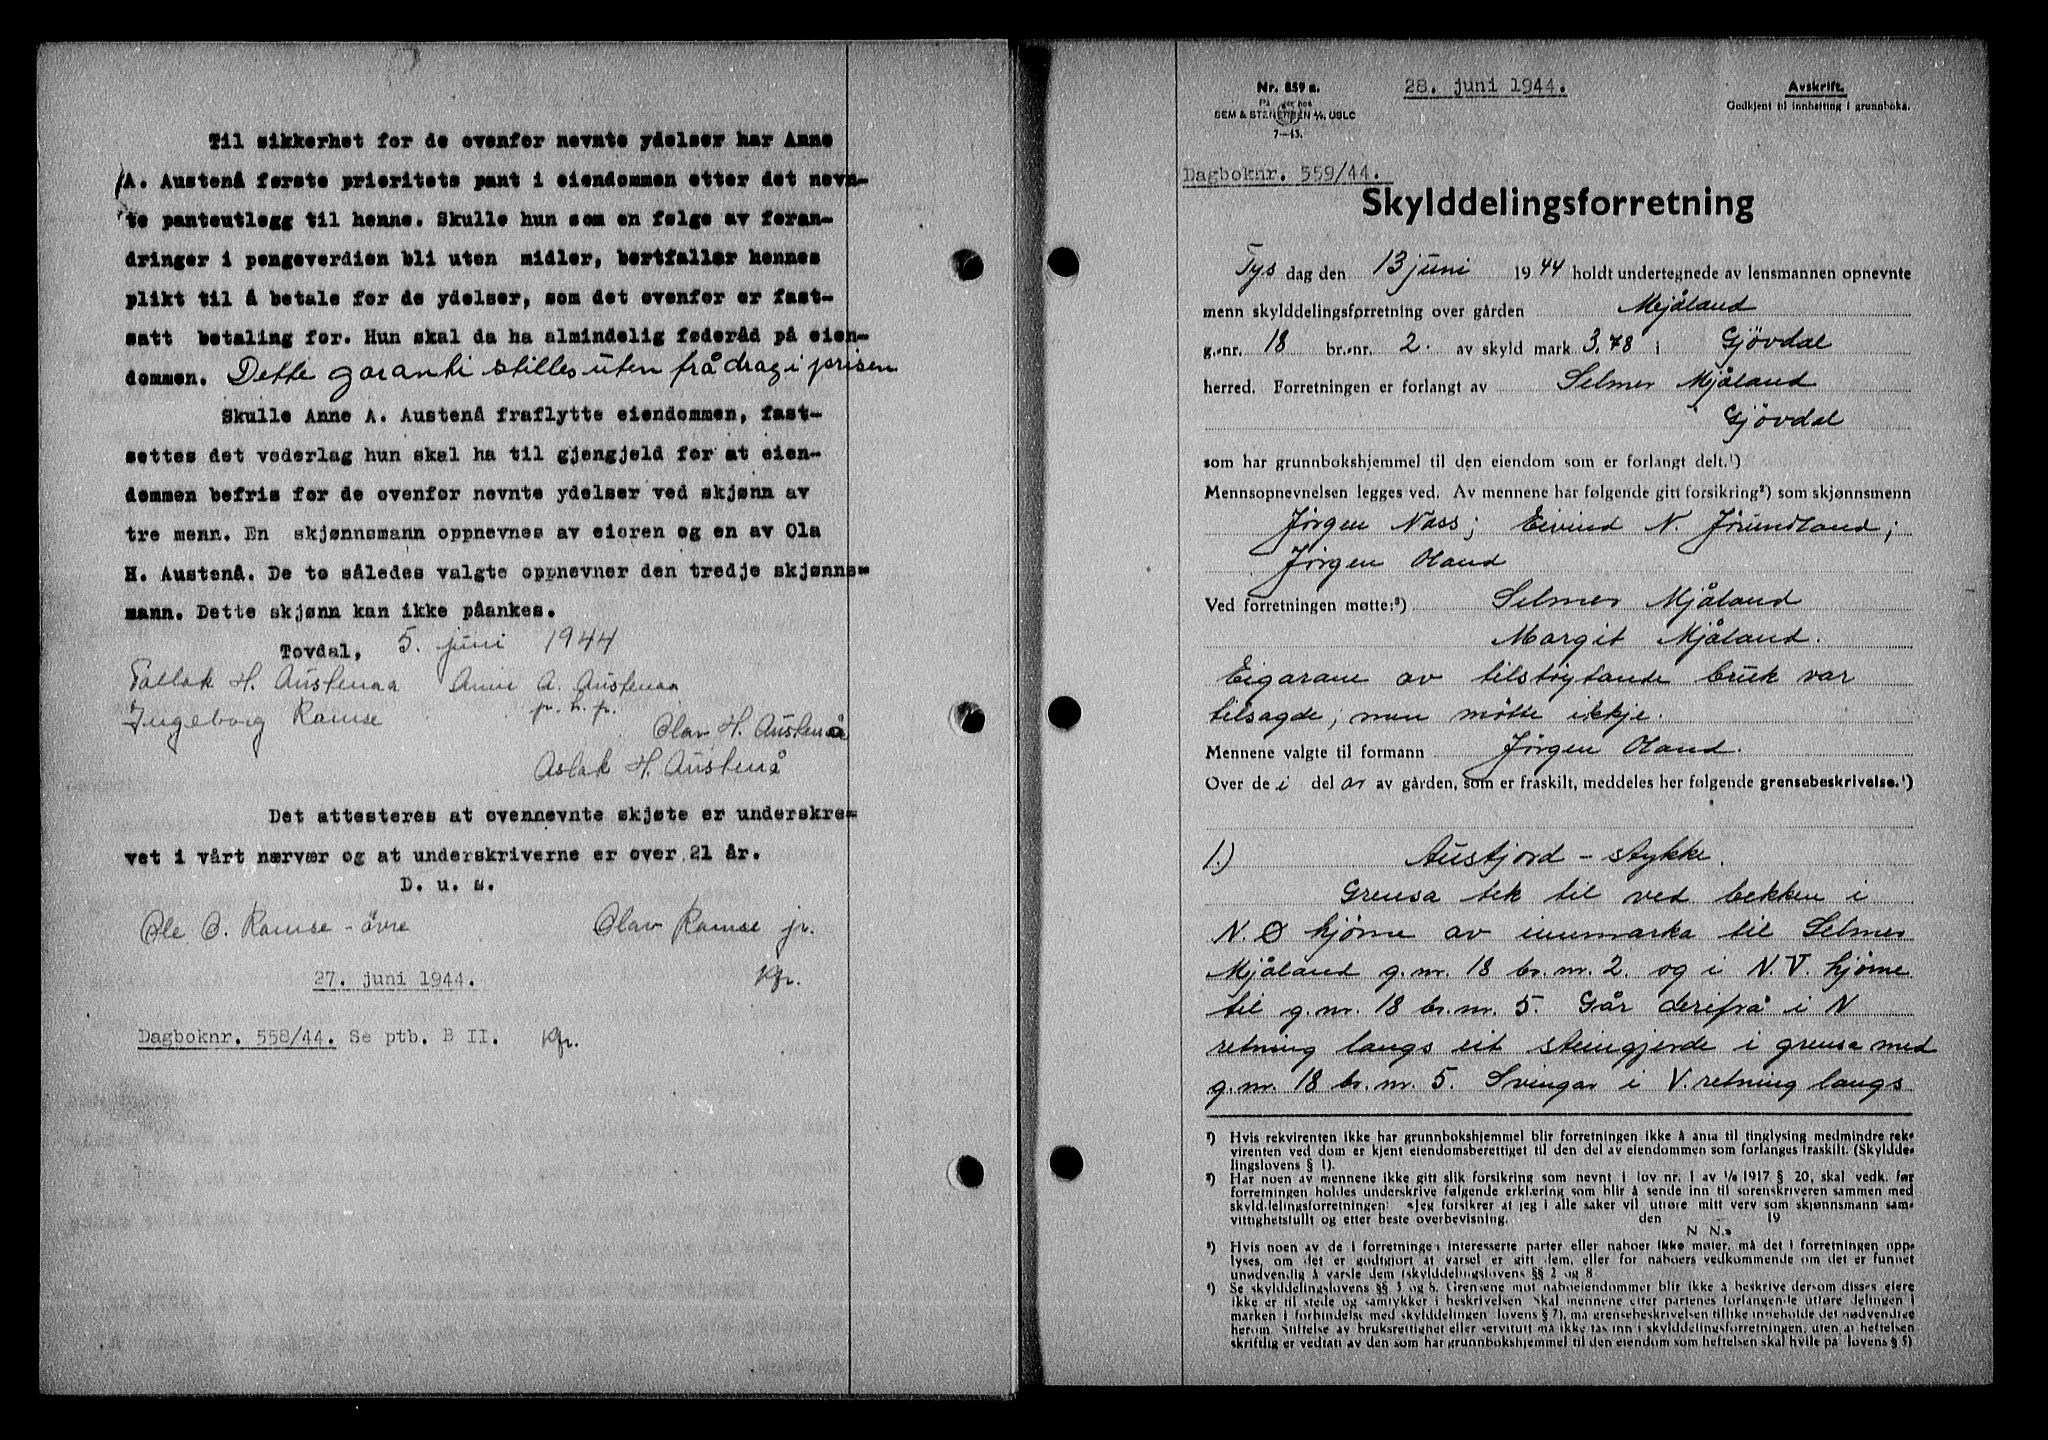 Til sikkerhet for de ovenfor nevnte ydelser har Anne
A. Austenå første prioritets pant i eiendommen etter det nevn-
te panteutlegg til henne. Skulle hun som en følge av foran-
dringer i pengeverdien bli uten midler, bortfaller hennes
plikt til å betale for de ydelser, som det ovenfor er fast-
satt betaling for. Hun skal da ha almindelig føderåd på eien-
dommen. Dette garanti stilles uten frådrag i prisen
Skulle Anne A. Austenå fraflytte eiendommen, fast-
settes det vederlag hun skal ha til gjengjeld for at eien-
dommen befris for de ovenfor nevnte ydelser ved skjønn av
tre menn. En skjønnsmann oppnevnes av eieren og en av Ola
H. Austenå. De to således valgte oppnevner den tredje skjønns-
mann. Dette skjønn kan ikke påankes.
Tovdal, 5. juni 1944
Tallak H. Austenaa Anne A. Austenaa
Ingeborg Ramse p. h. p.
Olav H. Austenå
Aslak H. Austenå
Det attesteres at ovennevnte skjøte er underskre-
vet i vårt nærvær og at underskriverne er over 21 år.
D. u. s.
Ole O. Ramse - øvre Olav Ramse jr.
27. juni 1944. Kfr.
Dagboknr. 558/44. Se ptb. B II. Kfr.
Nr. 859 a. 28. juni 1944. Avskrift.
Godkjent til innhefting i grunnboka.
SEM & STENERSEN A/S, OSLO
7—43.
Dagboknr. 559/44.
Skylddelingsforretning
Tys dag den 13 juni 1944 holdt undertegnede av lensmannen opnevnte
menn skylddelingsforretning over gården Mjåland
g.-nr. 18 br.-nr. 2. av skyld mark 3,78 i Gjövdal
herred. Forretningen er forlangt av Selmer Mjåland
Gjövdal
som har grunnbokshjemmel til den eiendom som er forlangt delt.¹)
Mennsopnevnelsen legges ved. Av mennene har følgende gitt forsikring²) som skjønnsmenn
Jørgen Nass; Eivind N. Jørundland;
Jørgen Oland
Ved forretningen møtte:³) Selmer Mjåland
Margit Mjåland.
Eigarane av tilstøytande bruk var
tilsagde, men møtte ikkje.
Mennene valgte til formann Jørgen Oland.
Over de i del ar av gården, som er fraskilt, meddeles her følgende grensebeskrivelse.⁴)
1.) Austjord - stykke.
Grensa tek til ved bekken i
N.Ø hjørne av innmarka til Selmer
Mjåland g.nr. 18 br.nr. 2. og i N.V. hjørne
til g.nr. 18 br.nr. 5. Går derifrå i N
retning langs eit steingjerde i grensa med
g.nr. 18 br.nr. 5. Svingar i V. retning langs
¹) Hvis rekvirenten ikke har grunnbokshjemmel blir forretningen ikke å anta til tinglysing medmindre rek-
virenten ved dom er kjent eiendomsberettiget til den del av eiendommen som forlanges fraskilt. (Skyldde-
lingslovens § 1).
²) Har noen av mennene ikke gitt slik forsikring som nevnt i lov nr. 1 av 1/6 1917 § 20, skal vedk. før
forretningen holdes underskrive følgende erklæring som blir å sende inn til sorenskriveren sammen med
skylddelingsforretningen: «Jeg forsikrer at jeg i alle saker vil utføre mitt verv som skjønnsmann sam-
vittighetsfullt og etter beste overbevisning. den 19
N. N.»
³) Hvis noen av de i forretningen interesserte parter eller naboer ikke møter, må det i forretningen opp-
lyses, om det er godtgjort at varsel er gitt dem, eller for naboers vedkommende om det er funnet
unødvendig å varsle dem (skylddelingslovens §§ 2 og 8
⁴) Se skylddelingslovens §§ 5 og 8. Grensene mot naboeiendommer blir ikke å beskrive dersom disses eiere
ikke er til stede og samtykker i beskrivelsen. Skal mennene etter partenes forlangende utføre delingen i
marken i forbindelse med skylddelingen (lovens § 7), må grensebeskrivelsen tillike inneholde det nødvendige
herom. Stiftelse av bruksrettighet eller servitutt må ikke tas inn i skylddelingsforretningen, uten at heftelsen
skriftlig er vedtatt av den som har grunnbokshjemmel til den eiendom som heftelsen skal hvile på (lovens § 5)